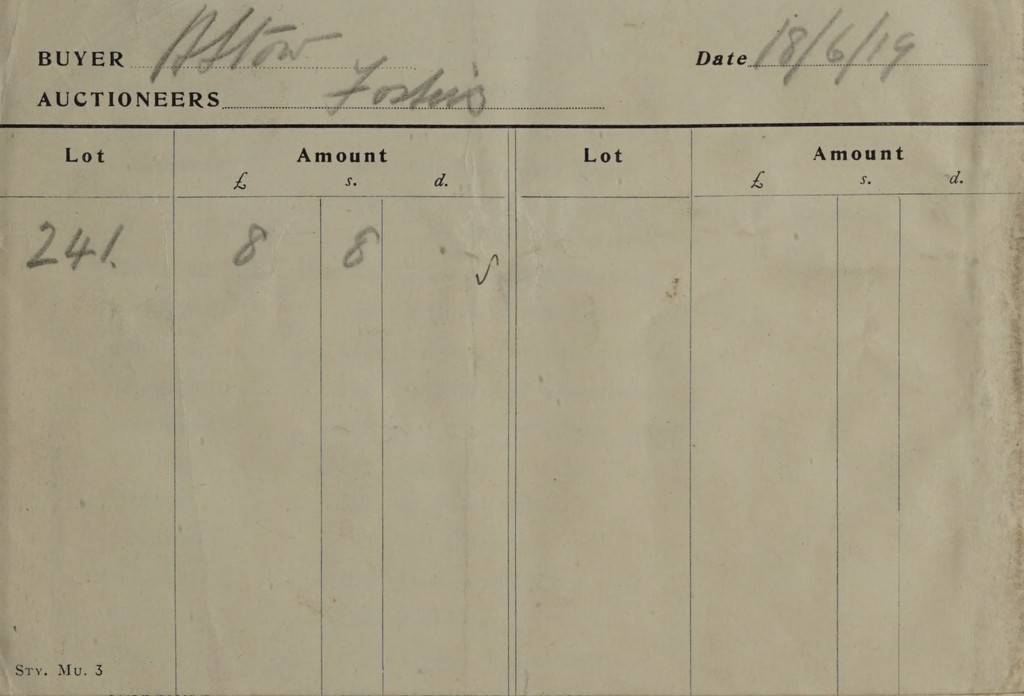 BUYER Alstow Date 18/6/19
AUCTIONEERS Foster's
Lot Amount Lot Amount
£ s. d. £ s. d.
241. 8 8 .
STY. MU. 3